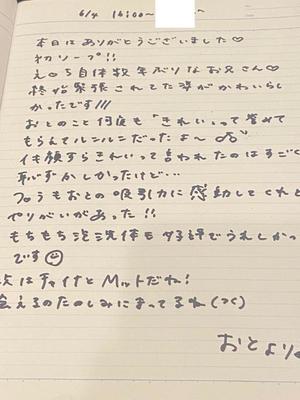 6/4 16:00〜
本日はありがとうございました♡
初ソープ!!
え〇ち自体数年ぶりなお兄さん♡
終始緊張されてた姿がかわいらし
かったです///
おとのこと何度も「きれい」って誉めて
もらえてルンルンだったよ〜
イキ顔すらきれいって言われたのはすごく
恥ずかしかったけど…
フェラもおとの吸引力に感動してくれて
やりがいがあった!!
もちもち泡洗体も好評でうれしかっ
です
次はチャイナとMットだね!
会えるのたのしみにまってるね(つく)
おとより